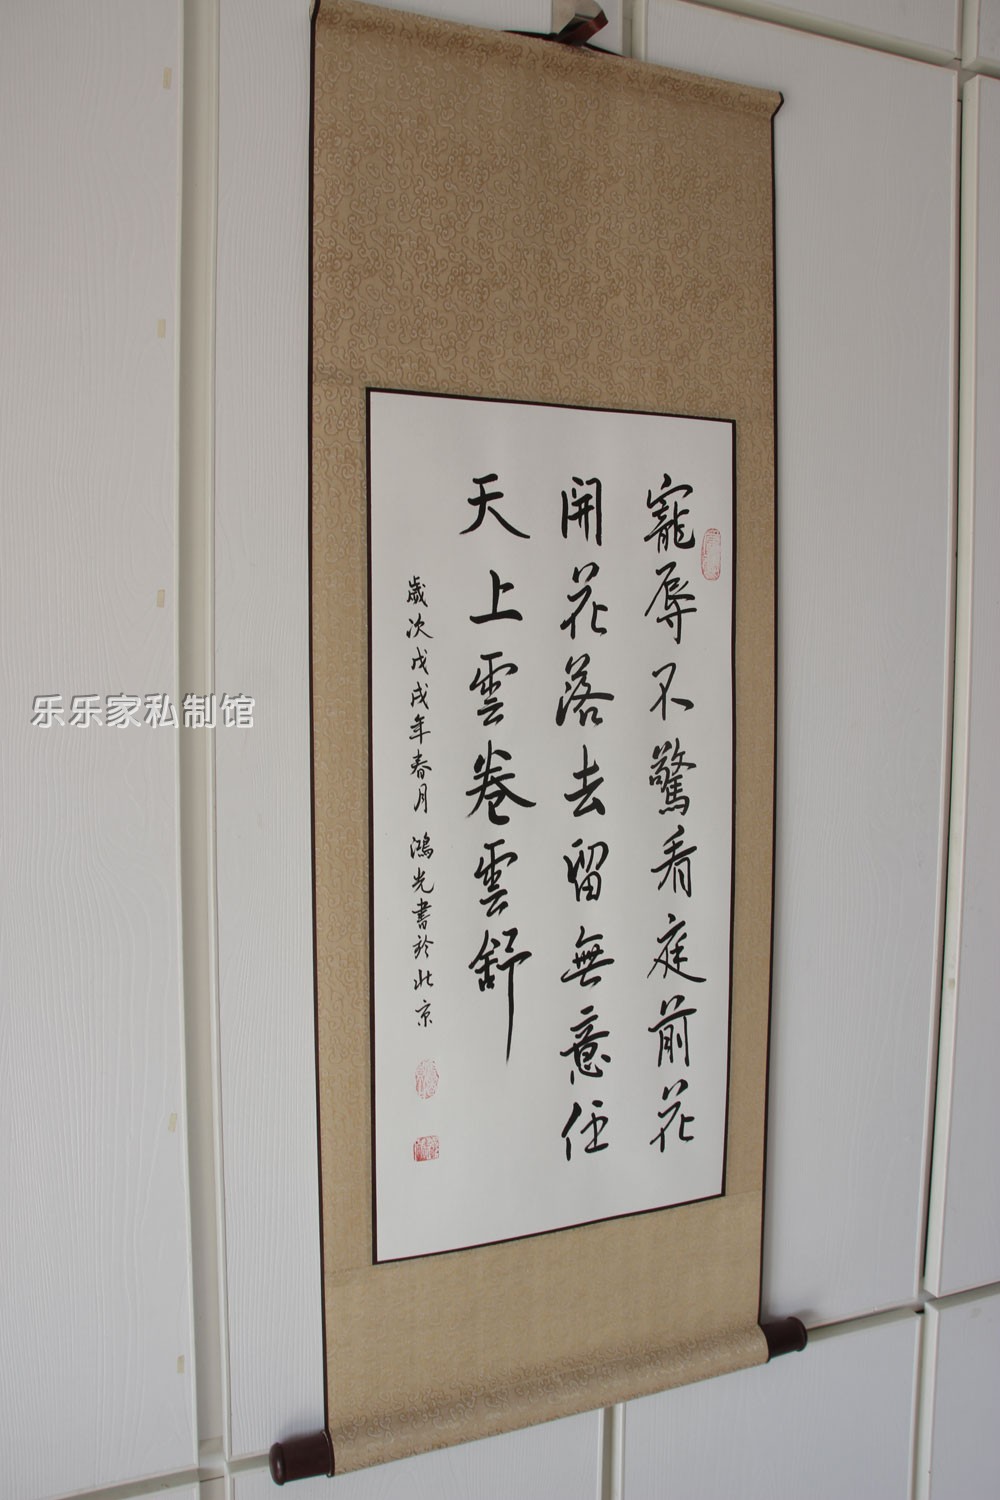 寵辱不驚看庭前花
開花落去留無意任
天上雲卷雲舒
歲次戊戌年春月 鴻光書於北京
乐乐家私制馆